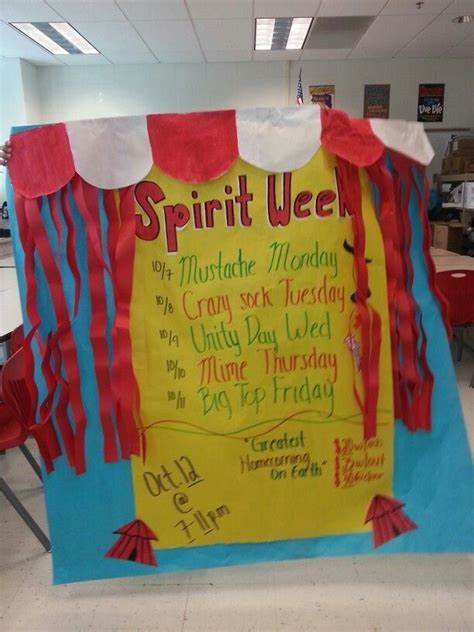 Spirit Week
10/7 Mustache Monday
10/8 Crazy sock Tuesday
10/9 Unity Day Wed
10/10 Mime Thursday
10/11 Big Top Friday
"Greatest
Homecoming
On Earth"
Oct. 12
@
7-11pm